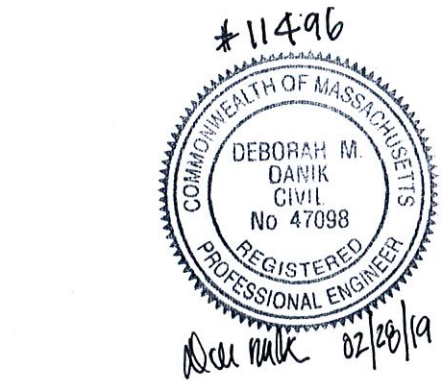 #11496
COMMONWEALTH OF MASSACHUSETTS
DEBORAH M.
DANIK
CIVIL
No 47098
REGISTERED
PROFESSIONAL ENGINEER
02/28/19